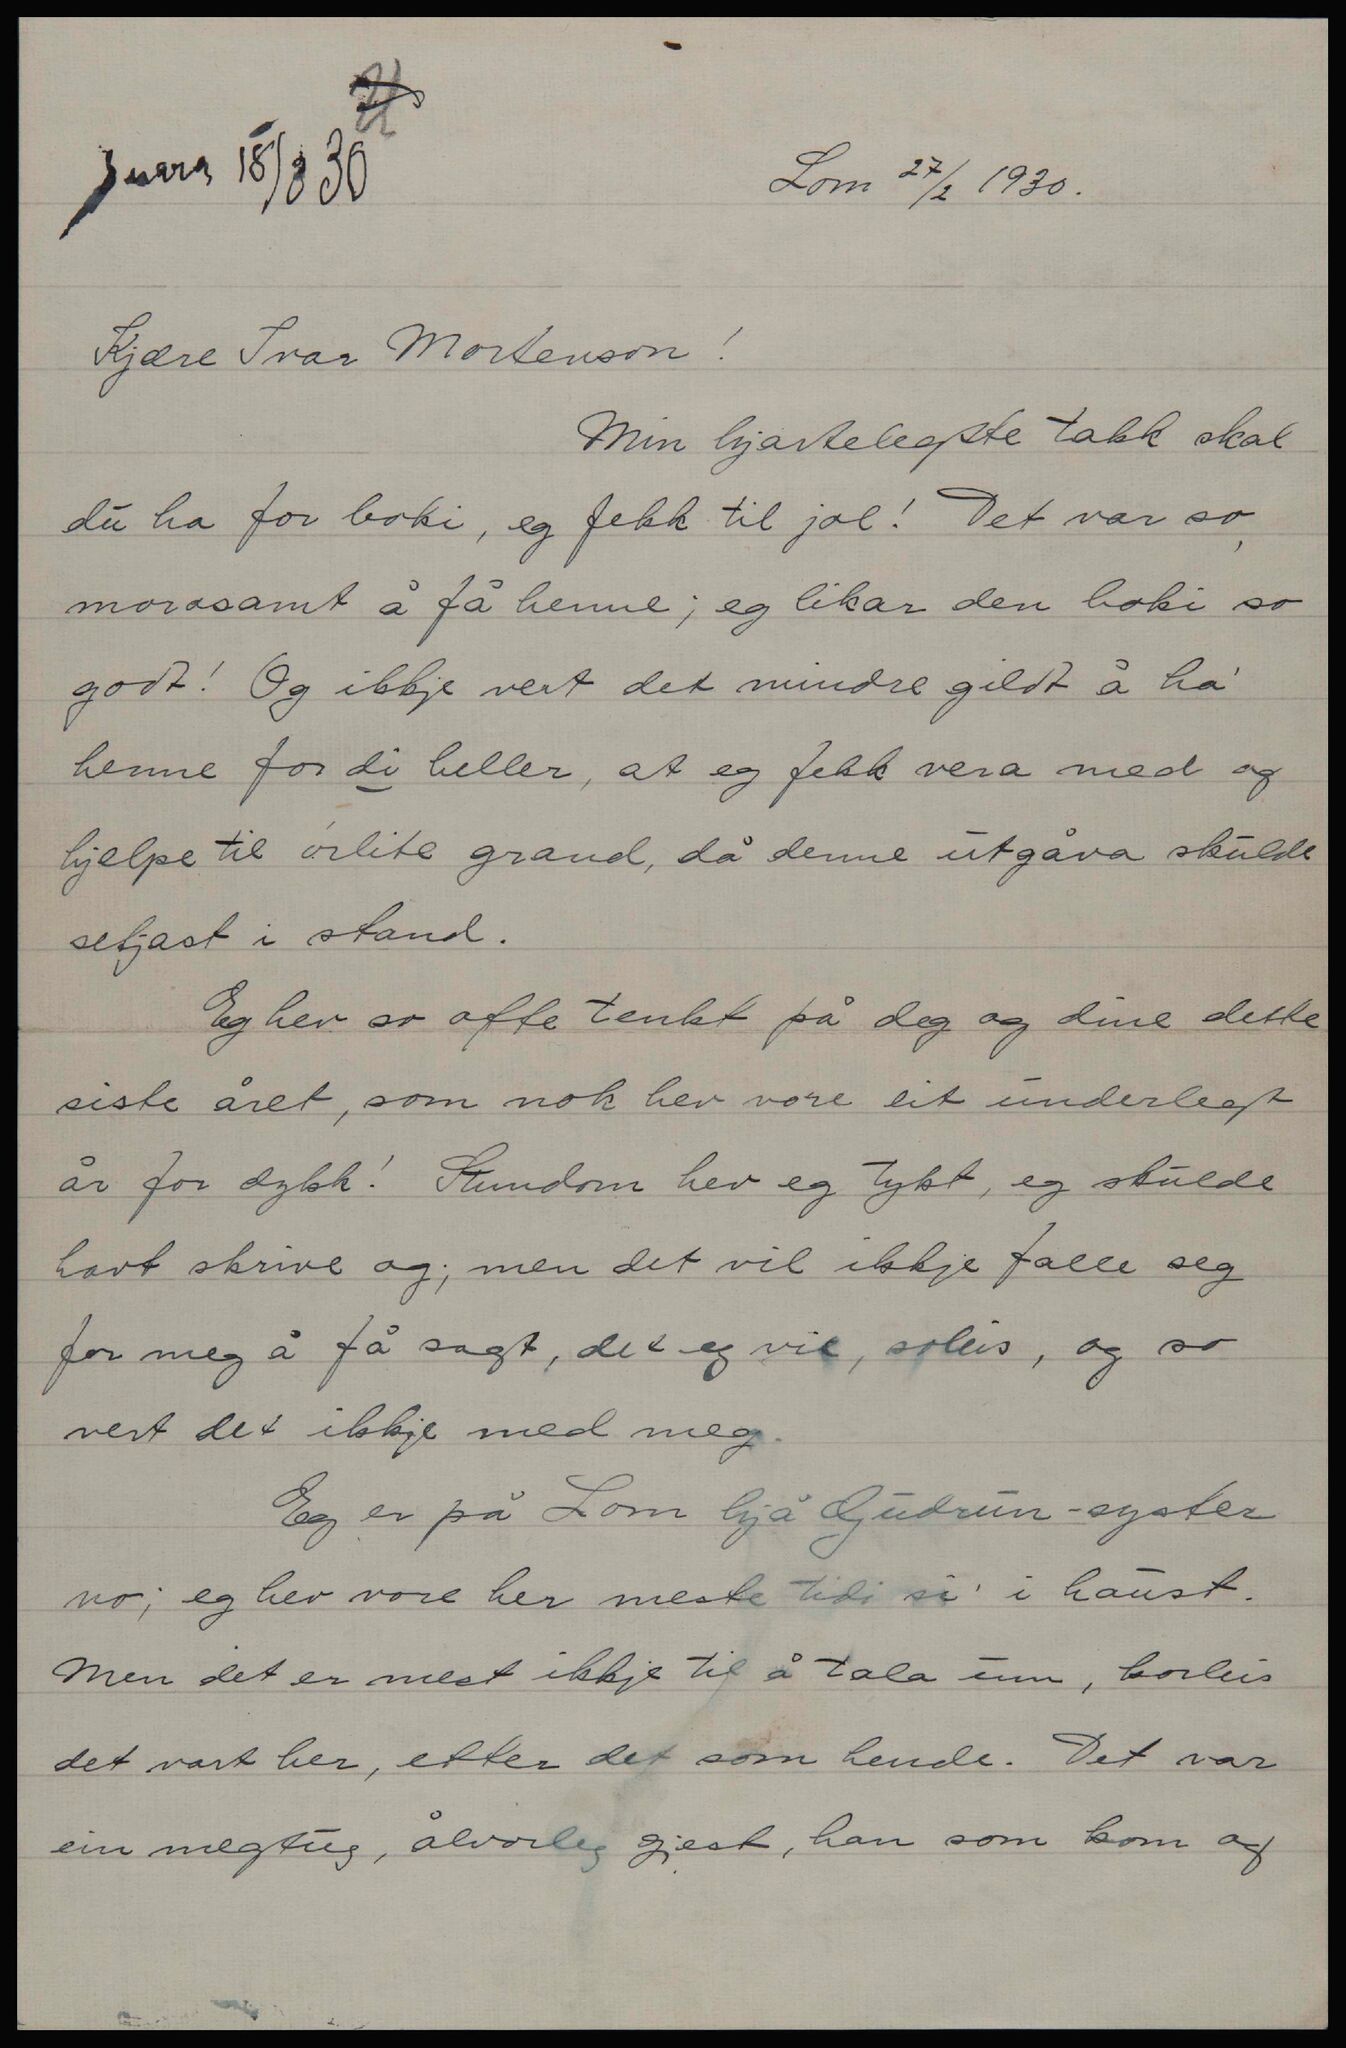 svara 18/3 30
Lom 27/2 1930.
Kjære Ivar Mortenson!
Min hjartelegste takk skal
du ha for boki, eg fekk til jol! Det var so
morosamt å få henne; eg likar den boki so
godt! Og ikkje vert det mindre gildt å ha'
henne for di heller, at eg fekk vera med og
hjelpe til órlite grand, då denne utgåva skulde
setjast i stand.
Eg hev so ofte tenkt på deg og dine dette
siste året, som nok hev vore eit underlegt
år for dykk! Stundom hev eg tykt, eg skulde
havt skrive og; men det vil ikkje falle seg
for meg å få sagt, det eg vil, soleis, og so
vert det ikkje med meg.
Eg er på Lom hjå Gudrun-syster
no; eg hev vore her meste tidi si' i haust.
Men det er mest ikkje til å tala um, korleis
det vart her, etter det som hende. Det var
ein megtug, ålvorleg gjest, han som kom og